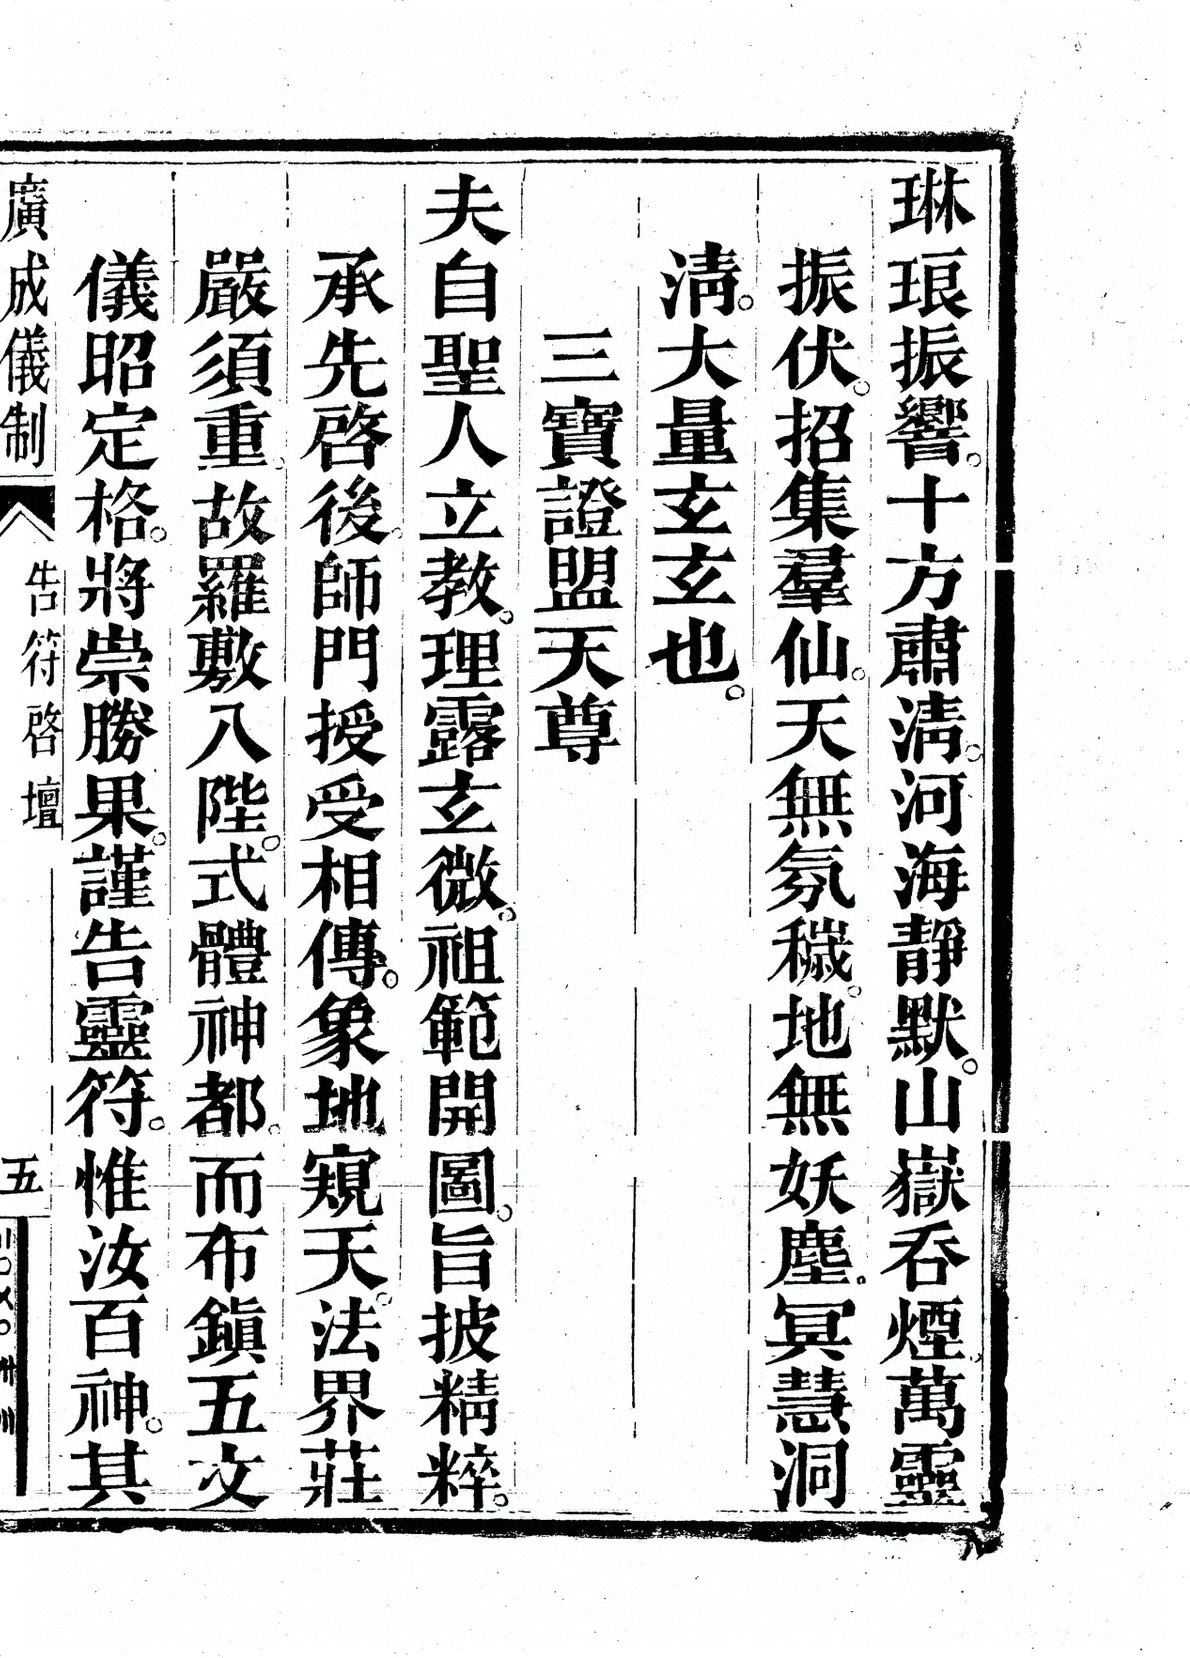 琳琅振響。十方肅淸。河海靜默。山嶽吞煙萬靈
振伏。招集羣仙。天無氛穢。地無妖塵。冥慧洞
淸。大量玄玄也。
三寶證盟天尊
夫自聖人立教。理露玄微。祖範開圖。旨披精粹。
承先啓後。師門授受相傳。象地窺天。法界莊
嚴須重。故羅敷八陛。式體神都。而布鎭五文
儀昭定格。將崇勝果。謹告靈符。惟汝百神。其
廣成儀制
告符啓壇
五